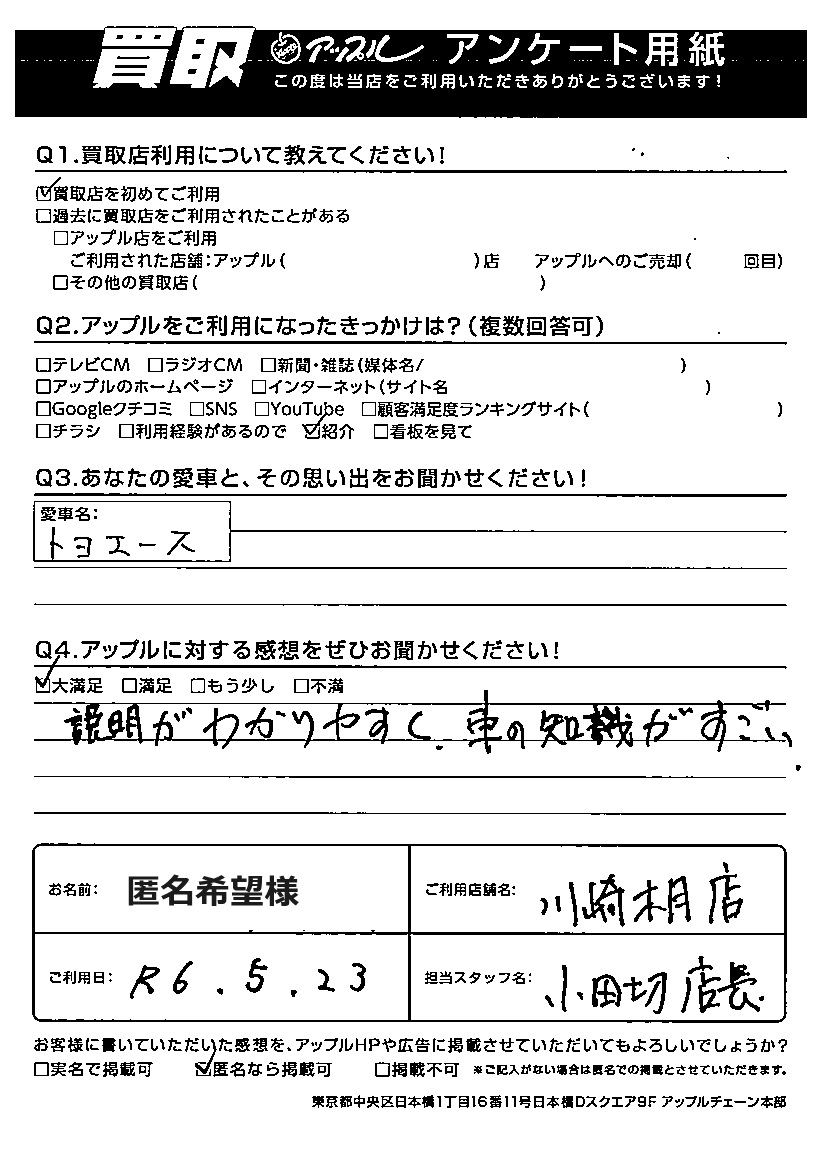 買取 アップル アンケート用紙
この度は当店をご利用いただきありがとうございます!
Q1.買取店利用について教えてください!
☑買取店を初めてご利用
□過去に買取店をご利用されたことがある
□アップル店をご利用
ご利用された店舗:アップル( )店 アップルへのご売却( 回目)
□その他の買取店( )
Q2.アップルをご利用になったきっかけは?(複数回答可)
□テレビCM □ラジオCM □新聞・雑誌(媒体名/ )
□アップルのホームページ □インターネット(サイト名 )
□Googleクチコミ □SNS □YouTube □顧客満足度ランキングサイト( )
□チラシ □利用経験があるので ☑紹介 □看板を見て
Q3.あなたの愛車と、その思い出をお聞かせください!
愛車名:
トヨエース
Q4.アップルに対する感想をぜひお聞かせください!
☑大満足 □満足 □もう少し □不満
説明がわかりやすく、車の知識がすごい.
お名前: 匿名希望様 ご利用店舗名: 川崎木月店
ご利用日: R6.5.23 担当スタッフ名: 小田切店長
お客様に書いていただいた感想を、アップルHPや広告に掲載させていただいてもよろしいでしょうか?
□実名で掲載可 ☑匿名なら掲載可 □掲載不可 ※ご記入がない場合は匿名での掲載とさせていただきます。
東京都中央区日本橋1丁目16番11号日本橋Dスクエア9F アップルチェーン本部